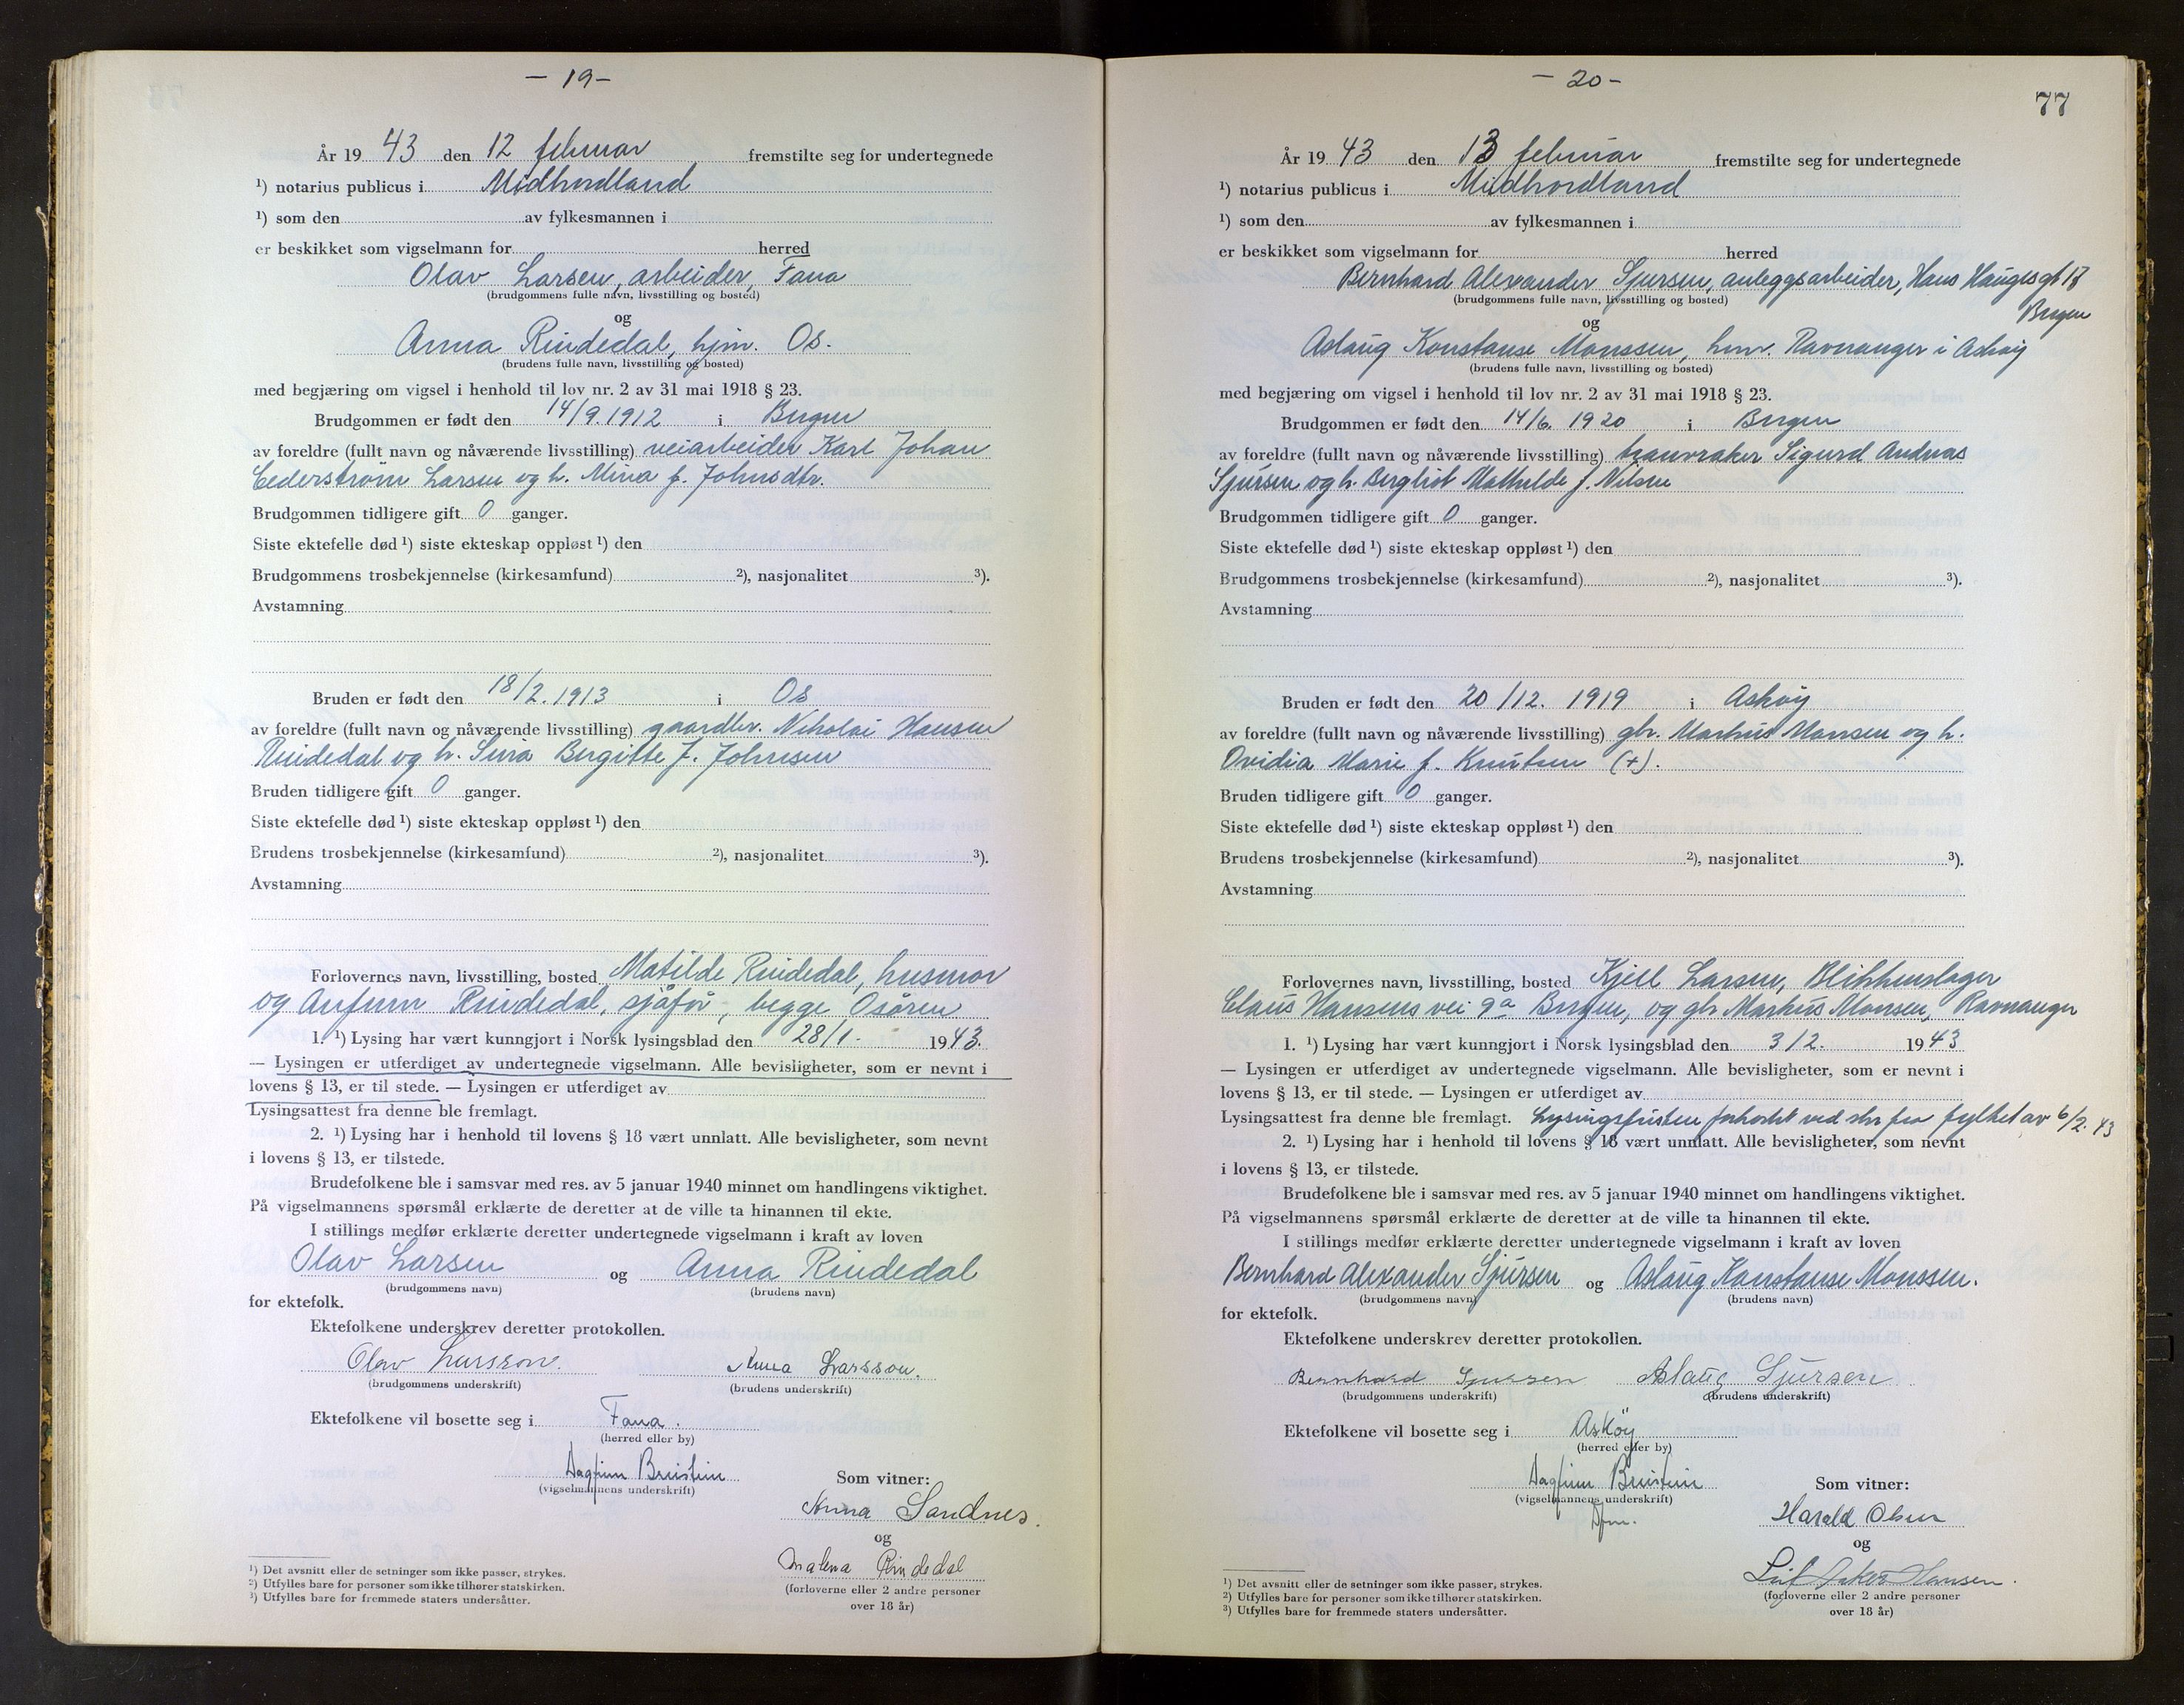 — 19 —
År 19 43 den 12 februar fremstilte seg for undertegnede
¹) notarius publicus i Midhordland
¹) som den av fylkesmannen i
er beskikket som vigselmann for herred
Olav Larsen, arbeider, Fana
(brudgommens fulle navn, livsstilling og bosted)
og
Anna Rindedal, hjm. Os.
(brudens fulle navn, livsstilling og bosted)
med begjæring om vigsel i henhold til lov nr. 2 av 31 mai 1918 § 23.
Brudgommen er født den 14/9. 1912 i Bergen
av foreldre (fullt navn og nåværende livsstilling) veiarbeider Karl Johan
Cederstrøm Larsen og h. Mina f. Johnsdtr.
Brudgommen tidligere gift 0 ganger.
Siste ektefelle død ¹) siste ekteskap oppløst ¹) den
Brudgommens trosbekjennelse (kirkesamfund) ²), nasjonalitet ³).
Avstamning
Bruden er født den 18/2. 1913 i Os
av foreldre (fullt navn og nåværende livsstilling) gaardbr. Nikolai Hansen
Rindedal og h. Birgitte f. Johnsen
Bruden tidligere gift 0 ganger.
Siste ektefelle død ¹) siste ekteskap oppløst ¹) den
Brudens trosbekjennelse (kirkesamfund) ²), nasjonalitet ³).
Avstamning
Forlovernes navn, livsstilling, bosted Matilde Rindedal, husmor
og Rindedal, sjåfør, begge Osøren
1. ¹) Lysing har vært kunngjort i Norsk lysingsblad den 28/1. 1943.
— Lysingen er utferdiget av undertegnede vigselmann. Alle bevisligheter, som er nevnt i
lovens § 13, er til stede. — Lysingen er utferdiget av
Lysingsattest fra denne ble fremlagt.
2. ¹) Lysing har i henhold til lovens § 18 vært unnlatt. Alle bevisligheter, som nevnt
i lovens § 13, er tilstede.
Brudefolkene ble i samsvar med res. av 5 januar 1940 minnet om handlingens viktighet.
På vigselmannens spørsmål erklærte de deretter at de ville ta hinannen til ekte.
I stillings medfør erklærte deretter undertegnede vigselmann i kraft av loven
Olav Larsen og Anna Rindedal
(brudgommens navn) (brudens navn)
for ektefolk.
Ektefolkene underskrev deretter protokollen.
Olav Larsson. Anna Larsson.
(brudgommens underskrift) (brudens underskrift)
Ektefolkene vil bosette seg i Fana.
(herred eller by)
Dagfinn
(vigselmannens underskrift)
Som vitner:
Anna Sandnes.
og
Malena Rindedal
(forloverne eller 2 andre personer
over 18 år)
¹) Det avsnitt eller de setninger som ikke passer, strykes.
²) Utfylles bare for personer som ikke tilhører statskirken.
³) Utfylles bare for fremmede staters undersåtter.
— 20 —
77
År 19 43 den 13 februar fremstilte seg for undertegnede
¹) notarius publicus i Midhordland
¹) som den av fylkesmannen i
er beskikket som vigselmann for herred
Bernhard Alexander Sjursen, anleggsarbeider, Hans Hauges gt 18
Bergen
(brudgommens fulle navn, livsstilling og bosted)
og
Aslaug Konstanse Monssen, hm. Ravnanger i Askøy
(brudens fulle navn, livsstilling og bosted)
med begjæring om vigsel i henhold til lov nr. 2 av 31 mai 1918 § 23.
Brudgommen er født den 14/6. 1920 i Bergen
av foreldre (fullt navn og nåværende livsstilling) tranvraker Sigurd Andreas
Sjursen og h. Bergliot Mathilde f. Nilsen
Brudgommen tidligere gift 0 ganger.
Siste ektefelle død ¹) siste ekteskap oppløst ¹) den
Brudgommens trosbekjennelse (kirkesamfund) ²), nasjonalitet ³).
Avstamning
Bruden er født den 20/12. 1919 i Askøy
av foreldre (fullt navn og nåværende livsstilling) gbr. Markus Monsen og h.
Ovidia Marie f. Knutsen (+).
Bruden tidligere gift 0 ganger.
Siste ektefelle død ¹) siste ekteskap oppløst ¹) den
Brudens trosbekjennelse (kirkesamfund) ²), nasjonalitet ³).
Avstamning
Forlovernes navn, livsstilling, bosted Kjell Larsen, Blikkenslager
Claus Hansens vei 9a Bergen, og gbr Markus Monsen, Ravnanger
1. ¹) Lysing har vært kunngjort i Norsk lysingsblad den 3/2. 1943
— Lysingen er utferdiget av undertegnede vigselmann. Alle bevisligheter, som er nevnt i
lovens § 13, er til stede. — Lysingen er utferdiget av
Lysingsattest fra denne ble fremlagt. Lysingsfristen forkortet ved skr fra fylket av 6/2. 43
2. ¹) Lysing har i henhold til lovens § 18 vært unnlatt. Alle bevisligheter, som nevnt
i lovens § 13, er tilstede.
Brudefolkene ble i samsvar med res. av 5 januar 1940 minnet om handlingens viktighet.
På vigselmannens spørsmål erklærte de deretter at de ville ta hinannen til ekte.
I stillings medfør erklærte deretter undertegnede vigselmann i kraft av loven
Bernhard Alexander Sjursen og Aslaug Konstanse Monssen.
(brudgommens navn) (brudens navn)
for ektefolk.
Ektefolkene underskrev deretter protokollen.
Bernhard Sjursen Aslaug Sjursen
(brudgommens underskrift) (brudens underskrift)
Ektefolkene vil bosette seg i Askøy
(herred eller by)
Dagfinn
(vigselmannens underskrift)
Dfm.
Som vitner:
Harald Olsen
og
Leif Hansen.
(forloverne eller 2 andre personer
over 18 år)
¹) Det avsnitt eller de setninger som ikke passer, strykes.
²) Utfylles bare for personer som ikke tilhører statskirken.
³) Utfylles bare for fremmede staters undersåtter.